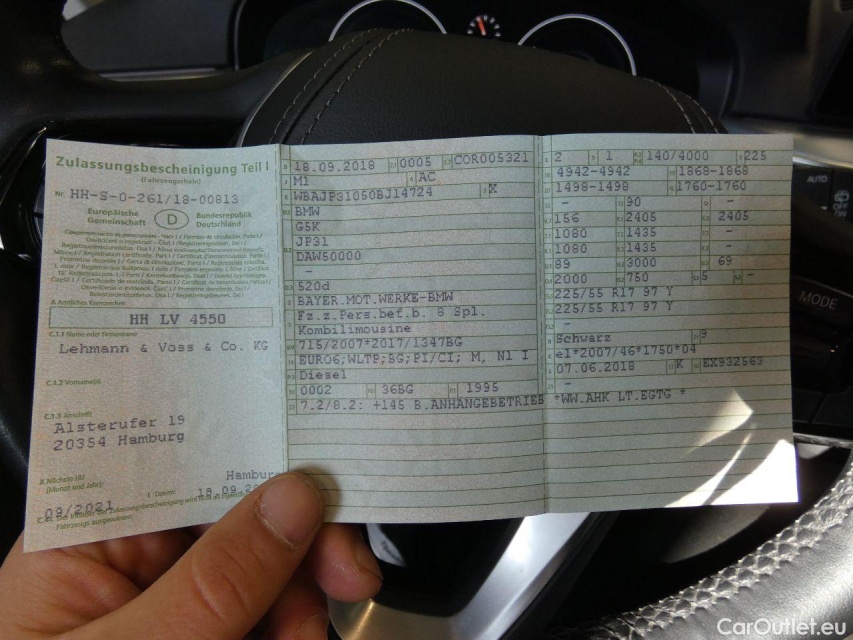 Zulassungsbescheinigung Teil I
(Fahrzeugschein)
Nr. HH-S-0-261/18-00813
Europäische Gemeinschaft D Bundesrepublik Deutschland
A Amtliches Kennzeichen
HH LV 4550
C.1.1 Name oder Firmenname
Lehmann & Voss & Co. KG
C.1.2 Vorname(n)
C.1.3 Anschrift
Alsterufer 19
20354 Hamburg
X Nächste HU
(Monat und Jahr)
09/2021
Hamburg
I Datum: 18.09.20
18.09.2018 0005 COR005321
M1 AC
WBAJP31050BJ14724 X
BMW
G5K
JP31
DAW50000
–
520d
BAYER.MOT.WERKE-BMW
Fz.z.Pers.bef.b. 8 Spl.
Kombilimousine
715/2007*2017/1347BG
EURO6;WLTP;BG;PI/CI; M, N1 I
Diesel
0002 36BG 1995
7.2/8.2: +145 B.ANHÄNGEBETRIEB *WW.AHK LT.EGTG *
2 1 140/4000 225
4942-4942 1868-1868
1498-1498 1760-1760
- 90 -
156 2405 2405
1080 1435 -
1080 1435 -
89 3000 69
2000 750 5 -
225/55 R17 97 Y
225/55 R17 97 Y
-
Schwarz 9
e1*2007/46*1750*04
07.06.2018 K EX932563
-
AUTO
MODE
CarOutlet.eu